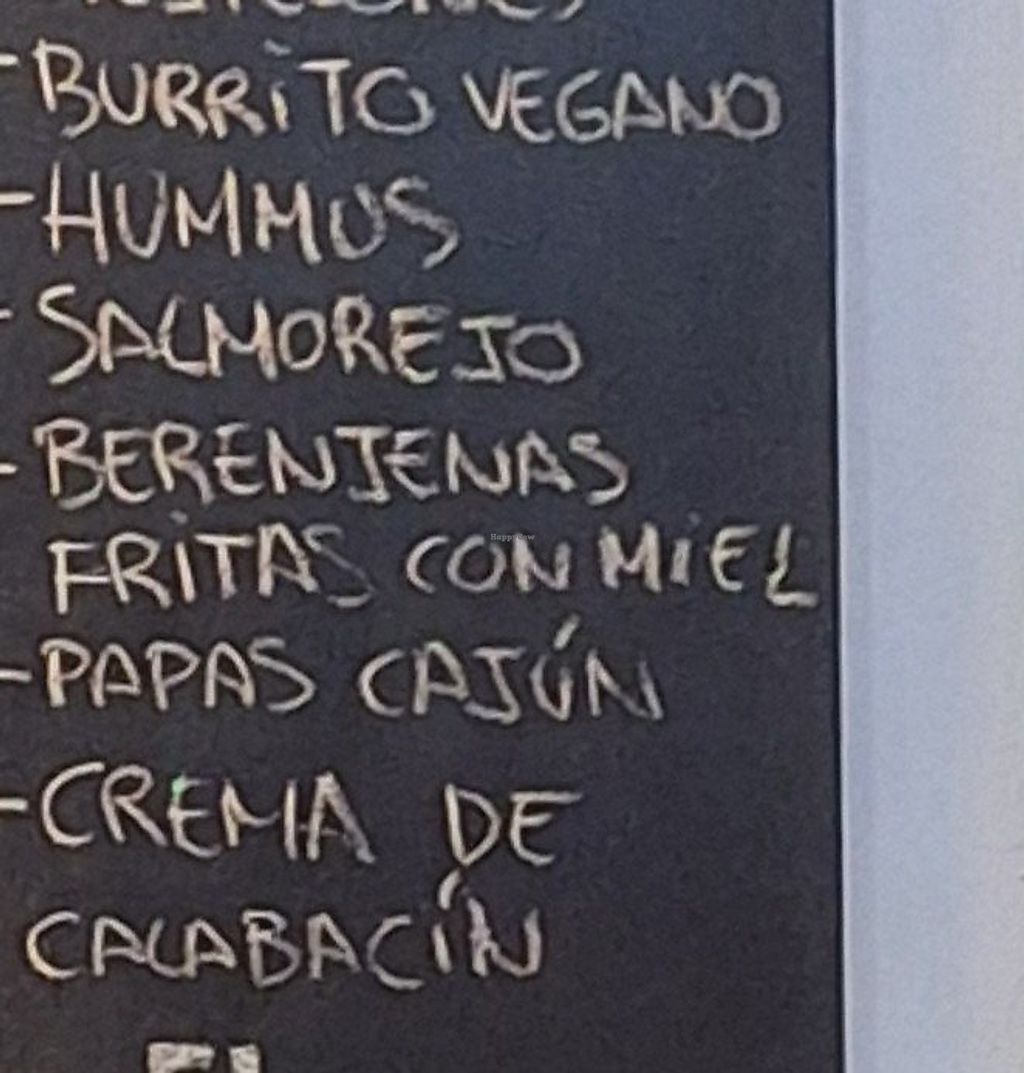 - BURRiTO VEGANO
- HUMMUS
- SALMOREJO
- BERENJENAS
FRiTAS CON MiEL
- PAPAS CAJÚN
- CREMA DE
CALABACÍN
HappyCow